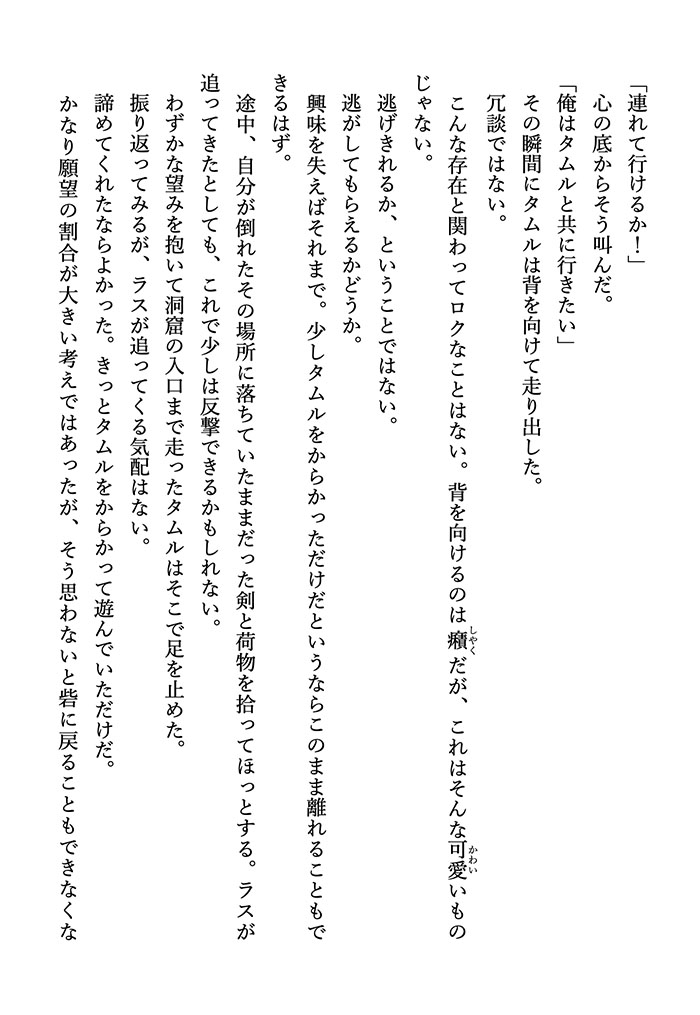 「連れて行けるか！」
心の底からそう叫んだ。
「俺はタムルと共に行きたい」
その瞬間にタムルは背を向けて走り出した。
冗談ではない。
こんな存在と関わってロクなことはない。背を向けるのは癪だが、これはそんな可愛いもの
しゃく
かわい
じゃない。
逃げきれるか、ということではない。
逃がしてもらえるかどうか。
興味を失えばそれまで。少しタムルをからかっただけだというならこのまま離れることもで
きるはず。
途中、自分が倒れたその場所に落ちていたままだった剣と荷物を拾ってほっとする。ラスが
追ってきたとしても、これで少しは反撃できるかもしれない。
わずかな望みを抱いて洞窟の入口まで走ったタムルはそこで足を止めた。
振り返ってみるが、ラスが追ってくる気配はない。
諦めてくれたならよかった。きっとタムルをからかって遊んでいただけだ。
かなり願望の割合が大きい考えではあったが、そう思わないと砦に戻ることもできなくな